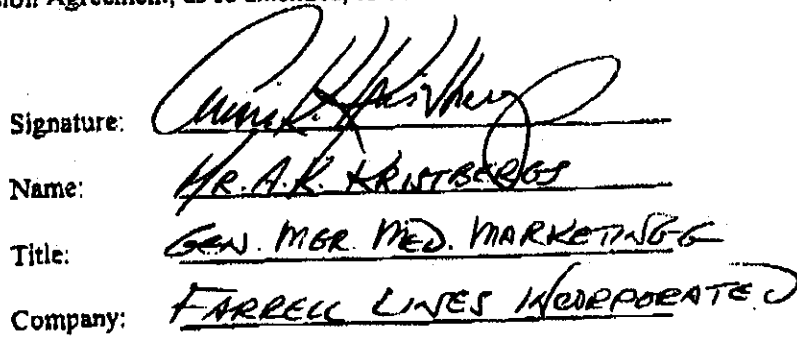 Agreement, as so amended,
Signature:
Name: MR. A.K. KRISTBERGS
Title: GEN. MGR. MED. MARKETING
Company: FARRELL LINES INCORPORATED